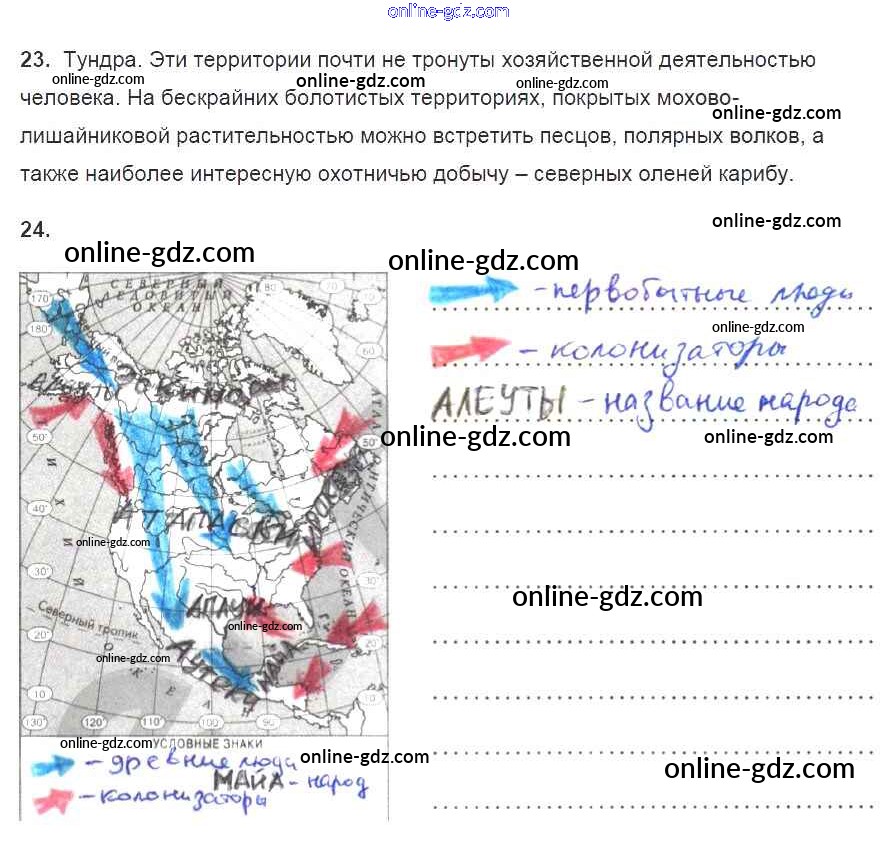 online-gdz.com
23. Тундра. Эти территории почти не тронуты хозяйственной деятельностью
online-gdz.com online-gdz.com online-gdz.com
человека. На бескрайних болотистых территориях, покрытых мохово-
online-gdz.com
лишайниковой растительностью можно встретить песцов, полярных волков, а
также наиболее интересную охотничью добычу – северных оленей карибу.
24.
online-gdz.com
online-gdz.com
online-gdz.com
СЕВЕРНЫЙ
ЛЕДОВИТЫЙ
ОКЕАН
170
180
80
70
10
60
50
40
30
20
10
50
30
20
10
- первобытные люди
online-gdz.com
- колонизаторы
АЛЕУТЫ - название народа
Алеуты
Эскимосы
online-gdz.com
online-gdz.com
АТАПАСКИ
ТИХИЙ
АТЛАНТИЧЕСКИЙ ОКЕАН
online-gdz.com
АПАЧИ
online-gdz.com
online-gdz.com
Северный тропик
online-gdz.com
Ацтеки
МАЙЯ
ОКЕАН
130 120 110 100 90
online-gdz.com УСЛОВНЫЕ ЗНАКИ
online-gdz.com
- древние люди
МАЙА - народ
- колонизаторы
online-gdz.com